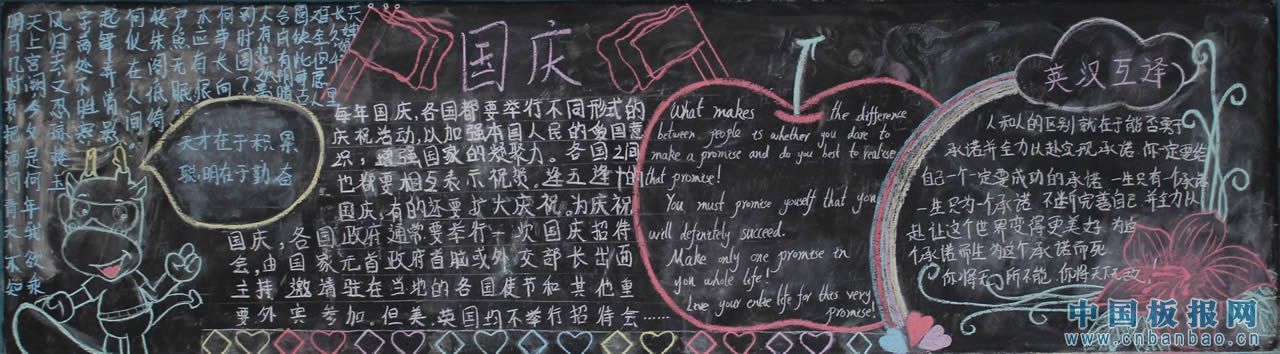 明月几时有 把酒问青天 不知
天上宫阙今夕是何年 我欲乘
风归去又恐琼楼玉
宇高处不胜寒
起舞弄清影
何似在人间。
转朱阁低绮
户照无眠
不应有恨
何事长向
别时圆?
人有悲欢离
合月有阴晴
圆缺此事古
难全但愿人
长久 千里
共婵娟
天才在于积累
聪明在于勤奋
国庆
每年国庆,各国都要举行不同形式的
庆祝活动,以加强本国人民的爱国意
识,增强国家的凝聚力。各国之间
也都要相互表示祝贺。逢五逢十的
国庆,有的还要扩大庆祝。为庆祝
国庆,各国政府通常要举行一次国庆招待
会,由国家元首政府首脑或外交部长出面
主持,邀请驻在当地的各国使节和其他重
要外宾参加。但美,英国均不举行招待会……
What makes the difference
between people is whether you dare to
make a promise and do you best to realise
that promise!
You must promise youself that you
will definitely succeed.
Make only one promise in
you whole life!
Live your entire life for this very
promise!
英汉互译
人和人的区别就在于能否敢于
承诺并全力以赴实现承诺.你一定要给
自己一个一定要成功的承诺 一生只有个承诺
一生只为一个承诺 不断完善自己 并全力以
赴让这个世界变得更美好 为这
个承诺而生 为这个承诺而死
你将无所不能,你将天下无敌!
中国板报网
www.cnbanbao.cn